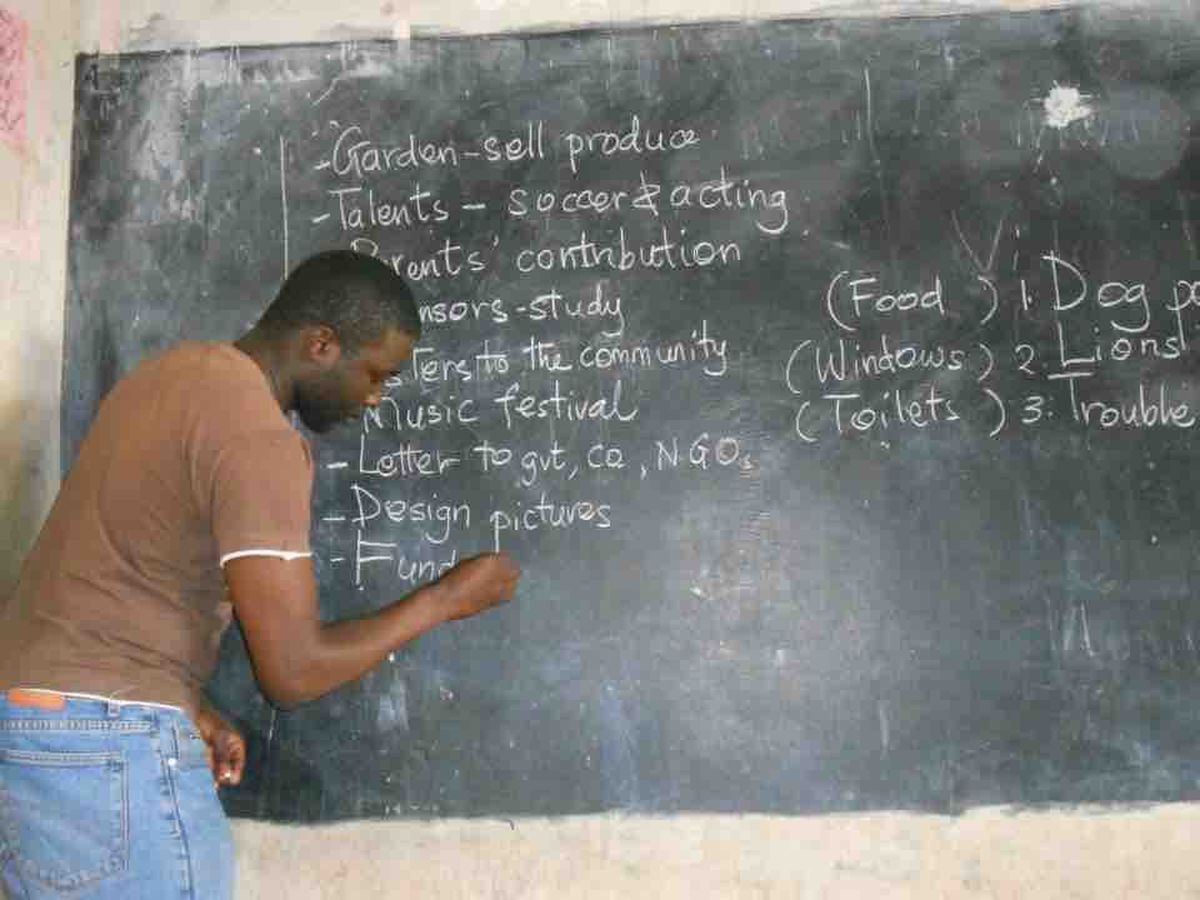 -Garden-sell produce
-Talents - soccer & acting
Parents' contribution
-study
to the community
Music festival
- Letter to gvt, co, NGOs
- Design pictures
- Fund
(Food ) 1. Dog
(Windows) 2. Lions
(Toilets ) 3. Trouble